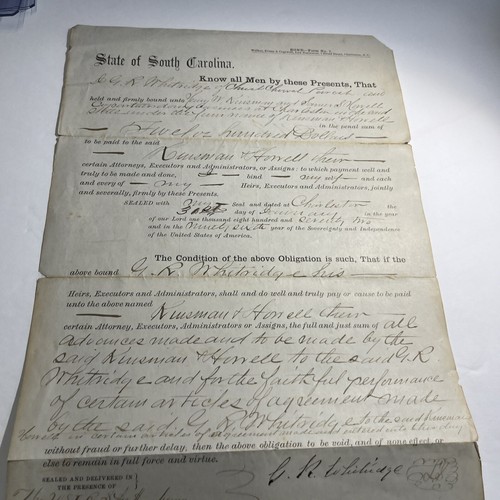 State of South Carolina.
Know all Men by these Presents, That
I G. R. Whitridge of Christ Church Parish am
held and firmly bound unto W. Kinsman and Howell
under the firm name of Kinsman & Howell
in the penal sum of
Twelve hundred Dollars
to be paid to the said
Kinsman & Howell their
certain Attorneys, Executors and Administrators, or Assigns: to which payment well and
truly to be made and done, I bind myself and each
and every of my Heirs, Executors and Administrators, jointly
and severally, firmly by these Presents.
SEALED with my Seal and dated at Charleston the
day of January in the year
of our Lord one thousand eight hundred and seventy two
and in the ninety sixth year of the Sovereignty and Independence
of the United States of America.
The Condition of the above Obligation is such, That if the
above bound G. R. Whitridge his
Heirs, Executors and Administrators, shall and do well and truly pay or cause to be paid
unto the above named
Kinsman & Howell their
certain Attorney, Executors, Administrators or Assigns, the full and just sum of all
advances made and to be made by the
said Kinsman & Howell to the said G. R
Whitridge and for the faithful performance
of certain articles of agreement made
by the said G. R. Whitridge to the said Kinsman
Howell in certain articles of agreement
without fraud or further delay, then the above obligation to be void, and of none effect, or
else to remain in full force and virtue.
SEALED AND DELIVERED IN
THE PRESENCE OF
G. R. Whitridge